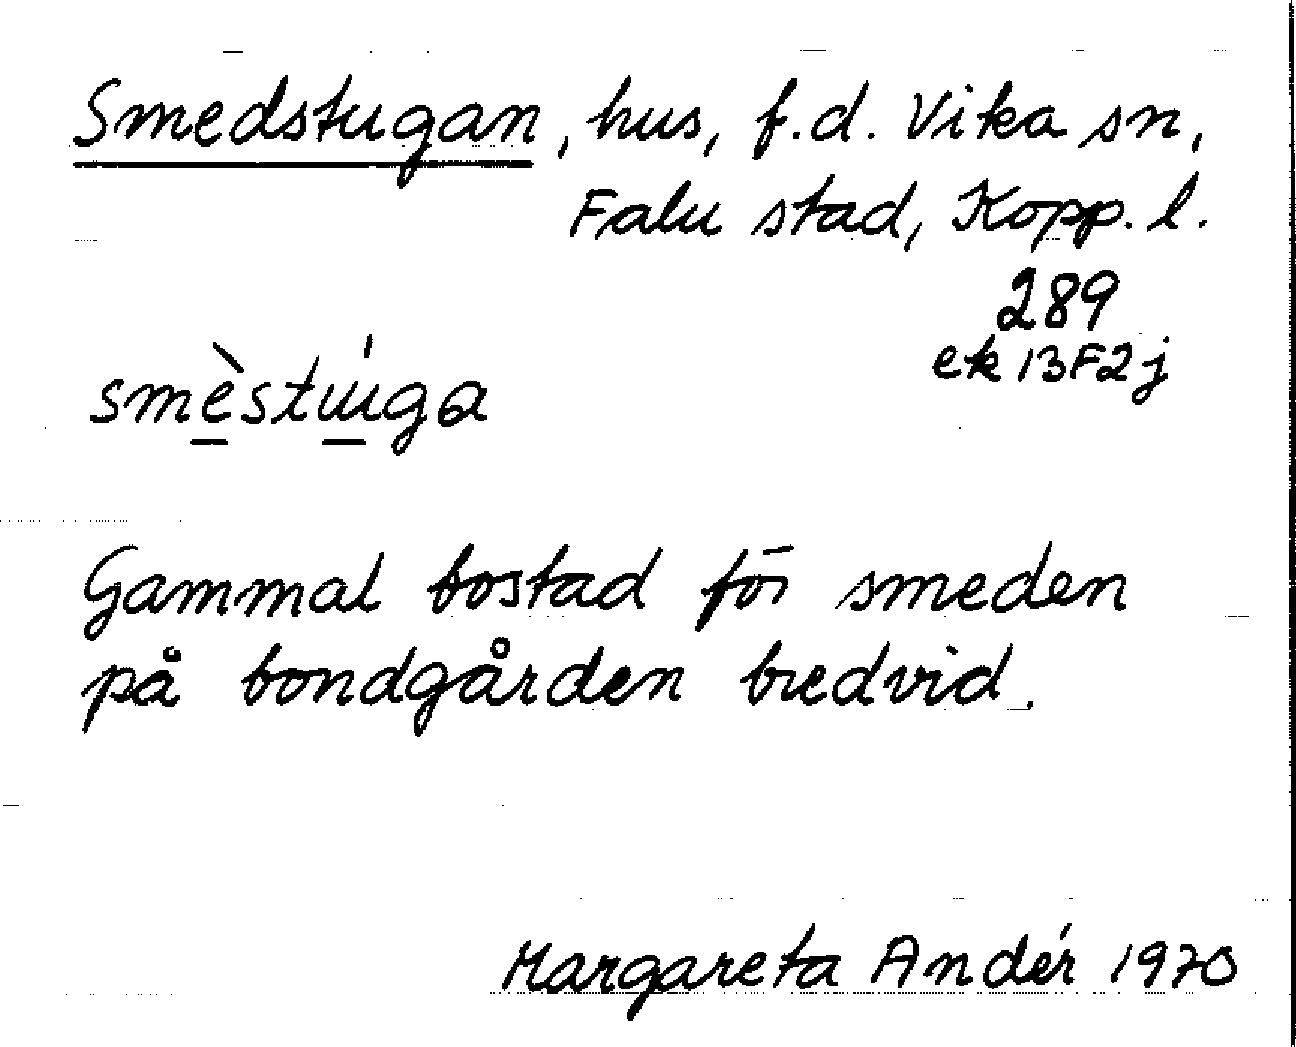 Smedstugan, hus, f.d. Vika sn,
Falu stad, Kopp. l.
289
ek 13F2j
smèstúga
Gammal bostad för smeden
på bondgården bredvid.
Margareta Andér 1970